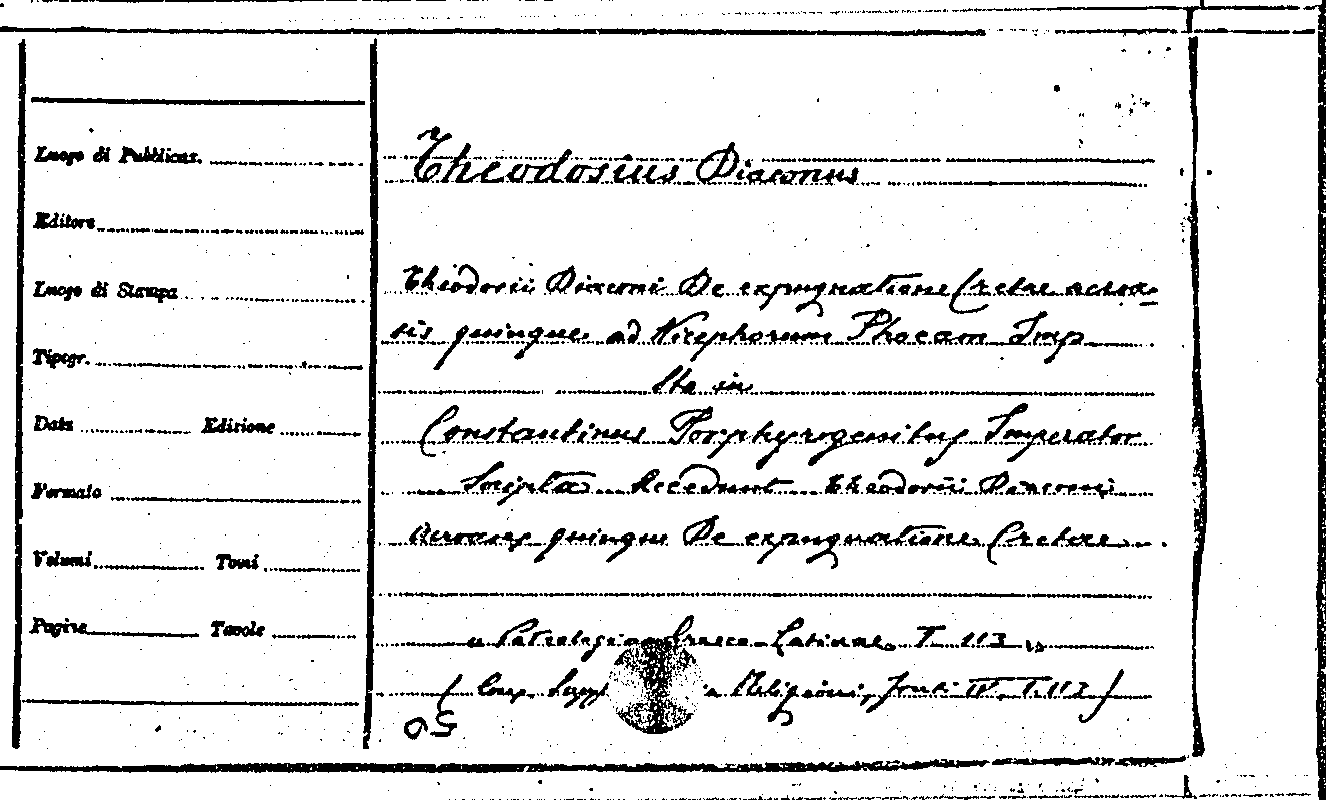 Luogo di Pubblicaz.
Editore
Luogo di Stampa
Tipogr.
Data Edizione
Formato
Volumi Tomi
Pagine Tavole
Theodosius Diaconus
Theodosii Diaconi De expugnatione Cretae acroa-
sis quinque ad Nicephorum Phocam Imp
Sta in
Constantinus Porphyrogenitus Imperator
Scripta Accedunt Theodosii Diaconi
Acroases quinque De expugnatione Cretae
"Patrologiae Graeco-Latinae T 113"
( Coll. Religioni, Fonti IV. T. 113 )
50